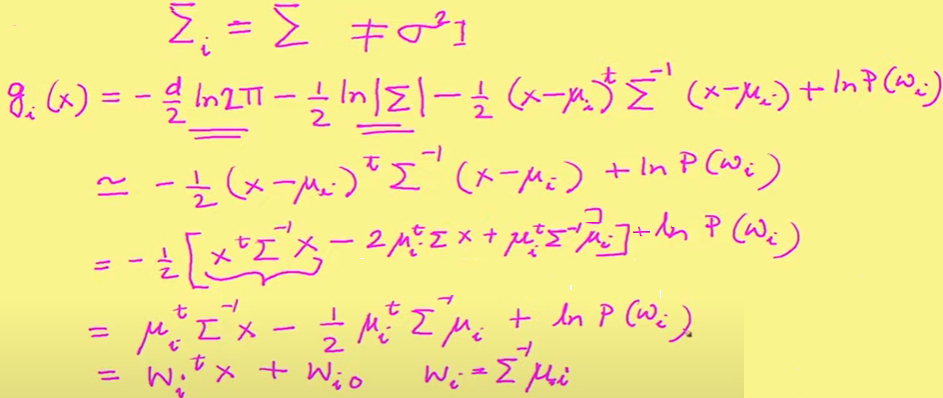 Σᵢ = Σ ≠ σ²I
gᵢ(x) = - d/2 ln2π - 1/2 ln|Σ| - 1/2 (x-μᵢ)ᵗ Σ⁻¹ (x-μᵢ) + ln P(ωᵢ)
≃ - 1/2 (x-μᵢ)ᵗ Σ⁻¹ (x-μᵢ) + ln P(ωᵢ)
= - 1/2 [xᵗΣ⁻¹x - 2μᵢᵗΣx + μᵢᵗΣ⁻¹μᵢ] + ln P(ωᵢ)
= μᵢᵗΣ⁻¹x - 1/2 μᵢᵗΣ⁻¹μᵢ + ln P(ωᵢ)
= Wᵢᵗx + Wᵢ₀ Wᵢ = Σ⁻¹μᵢ